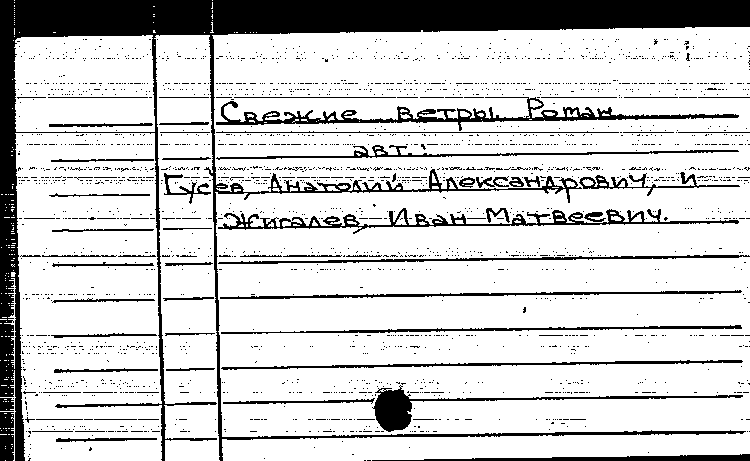 Свежие ветры. Роман.
авт.:
Гусев, Анатолий Александрович, и
Жигалев, Иван Матвеевич.